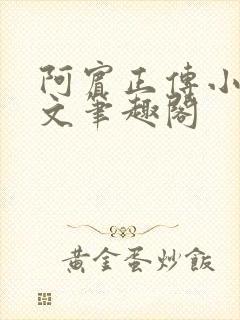 阿賓正傳小
文筆趣閣
黃金蛋炒飯